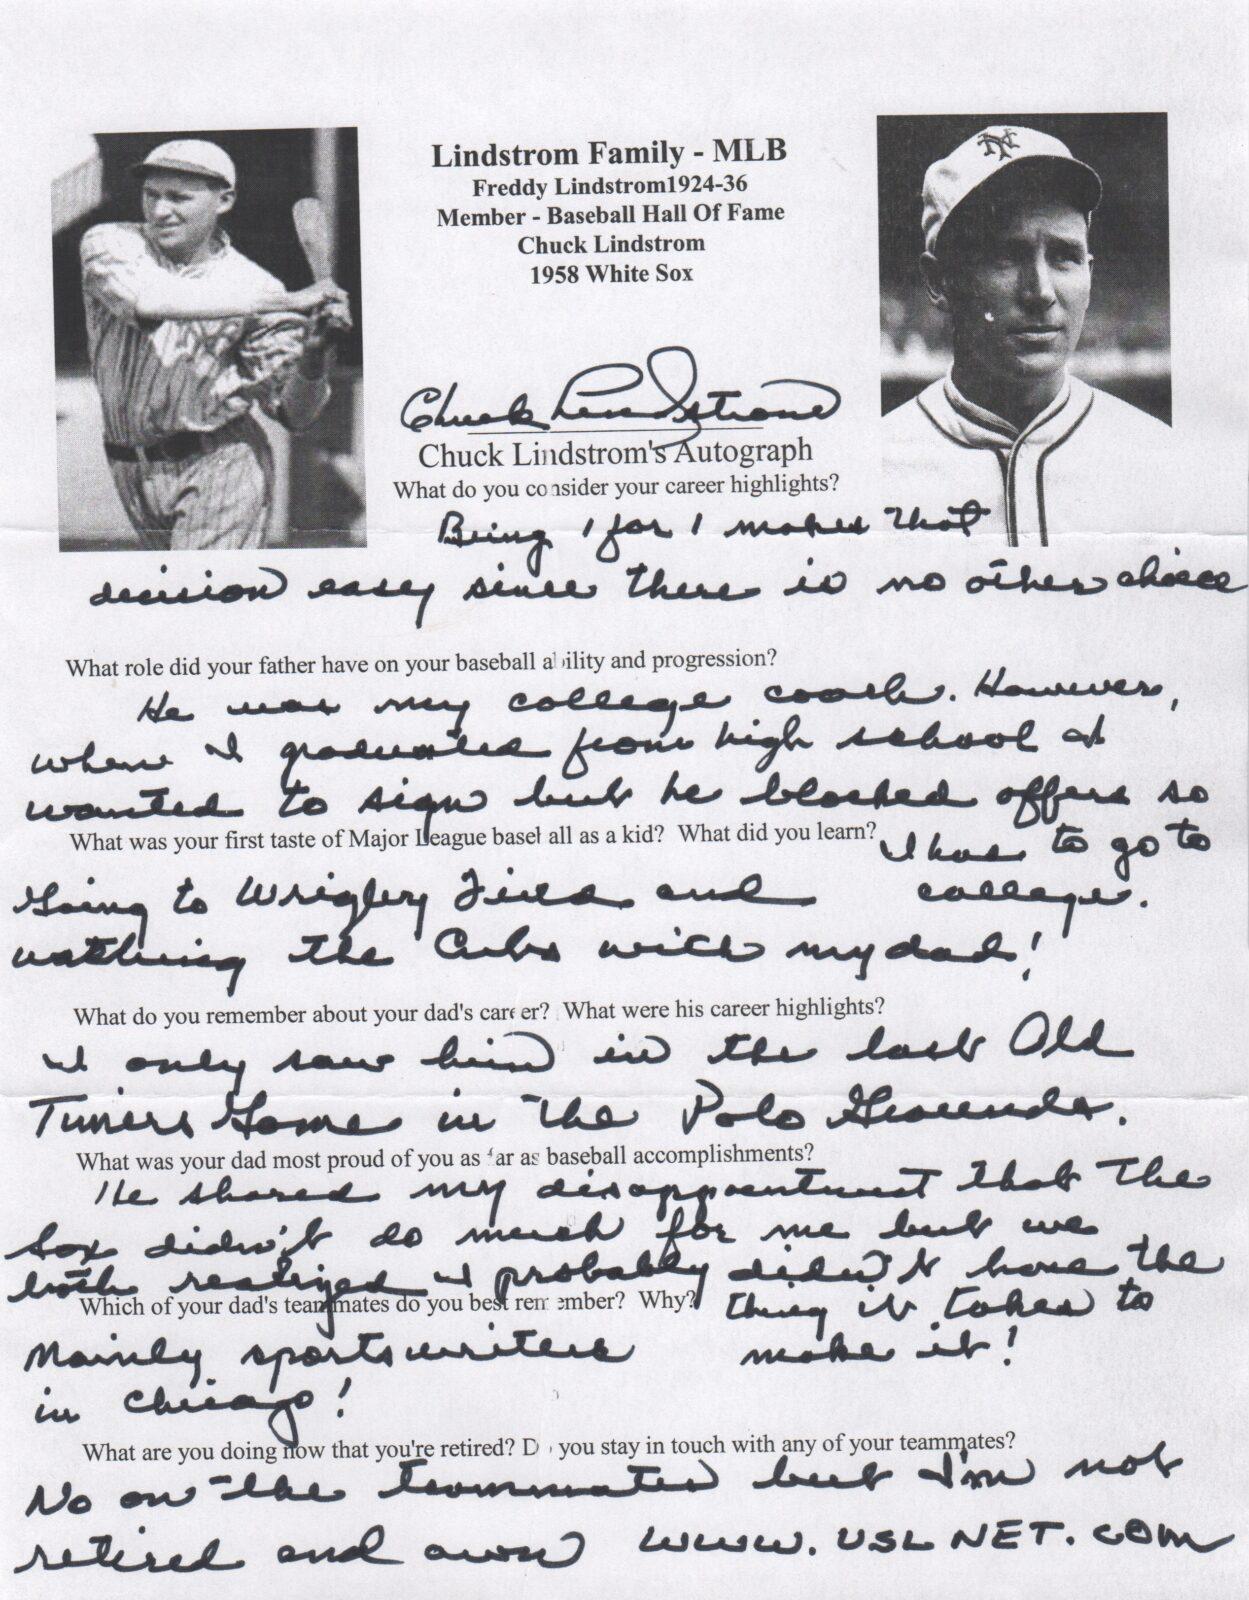 Lindstrom Family - MLB
Freddy Lindstrom1924-36
Member - Baseball Hall Of Fame
Chuck Lindstrom
1958 White Sox
NY
Chuck Lindstrom
Chuck Lindstrom's Autograph
What do you consider your career highlights?
Being 1 for 1 makes that
decision easy since there is no other choice
What role did your father have on your baseball ability and progression?
He was my college coach. However,
when I graduated from high school I
wanted to sign but he blocked offers so
What was your first taste of Major League baseball as a kid? What did you learn?
I had to go to
college.
Going to Wrigley Field and
watching the Cubs with my dad!
What do you remember about your dad's career? What were his career highlights?
I only saw him in the last Old
Timers Game in the Polo Grounds.
What was your dad most proud of you as far as baseball accomplishments?
He shared my disappointment that the
Sox didn't do much for me but we
both realized I probably didn't have the
thing it takes to
make it!
Which of your dad's teammates do you best remember? Why?
Mainly sportswriters
in Chicago!
What are you doing now that you're retired? Do you stay in touch with any of your teammates?
No on the teammates but I'm not
retired and own www.USLNET.com